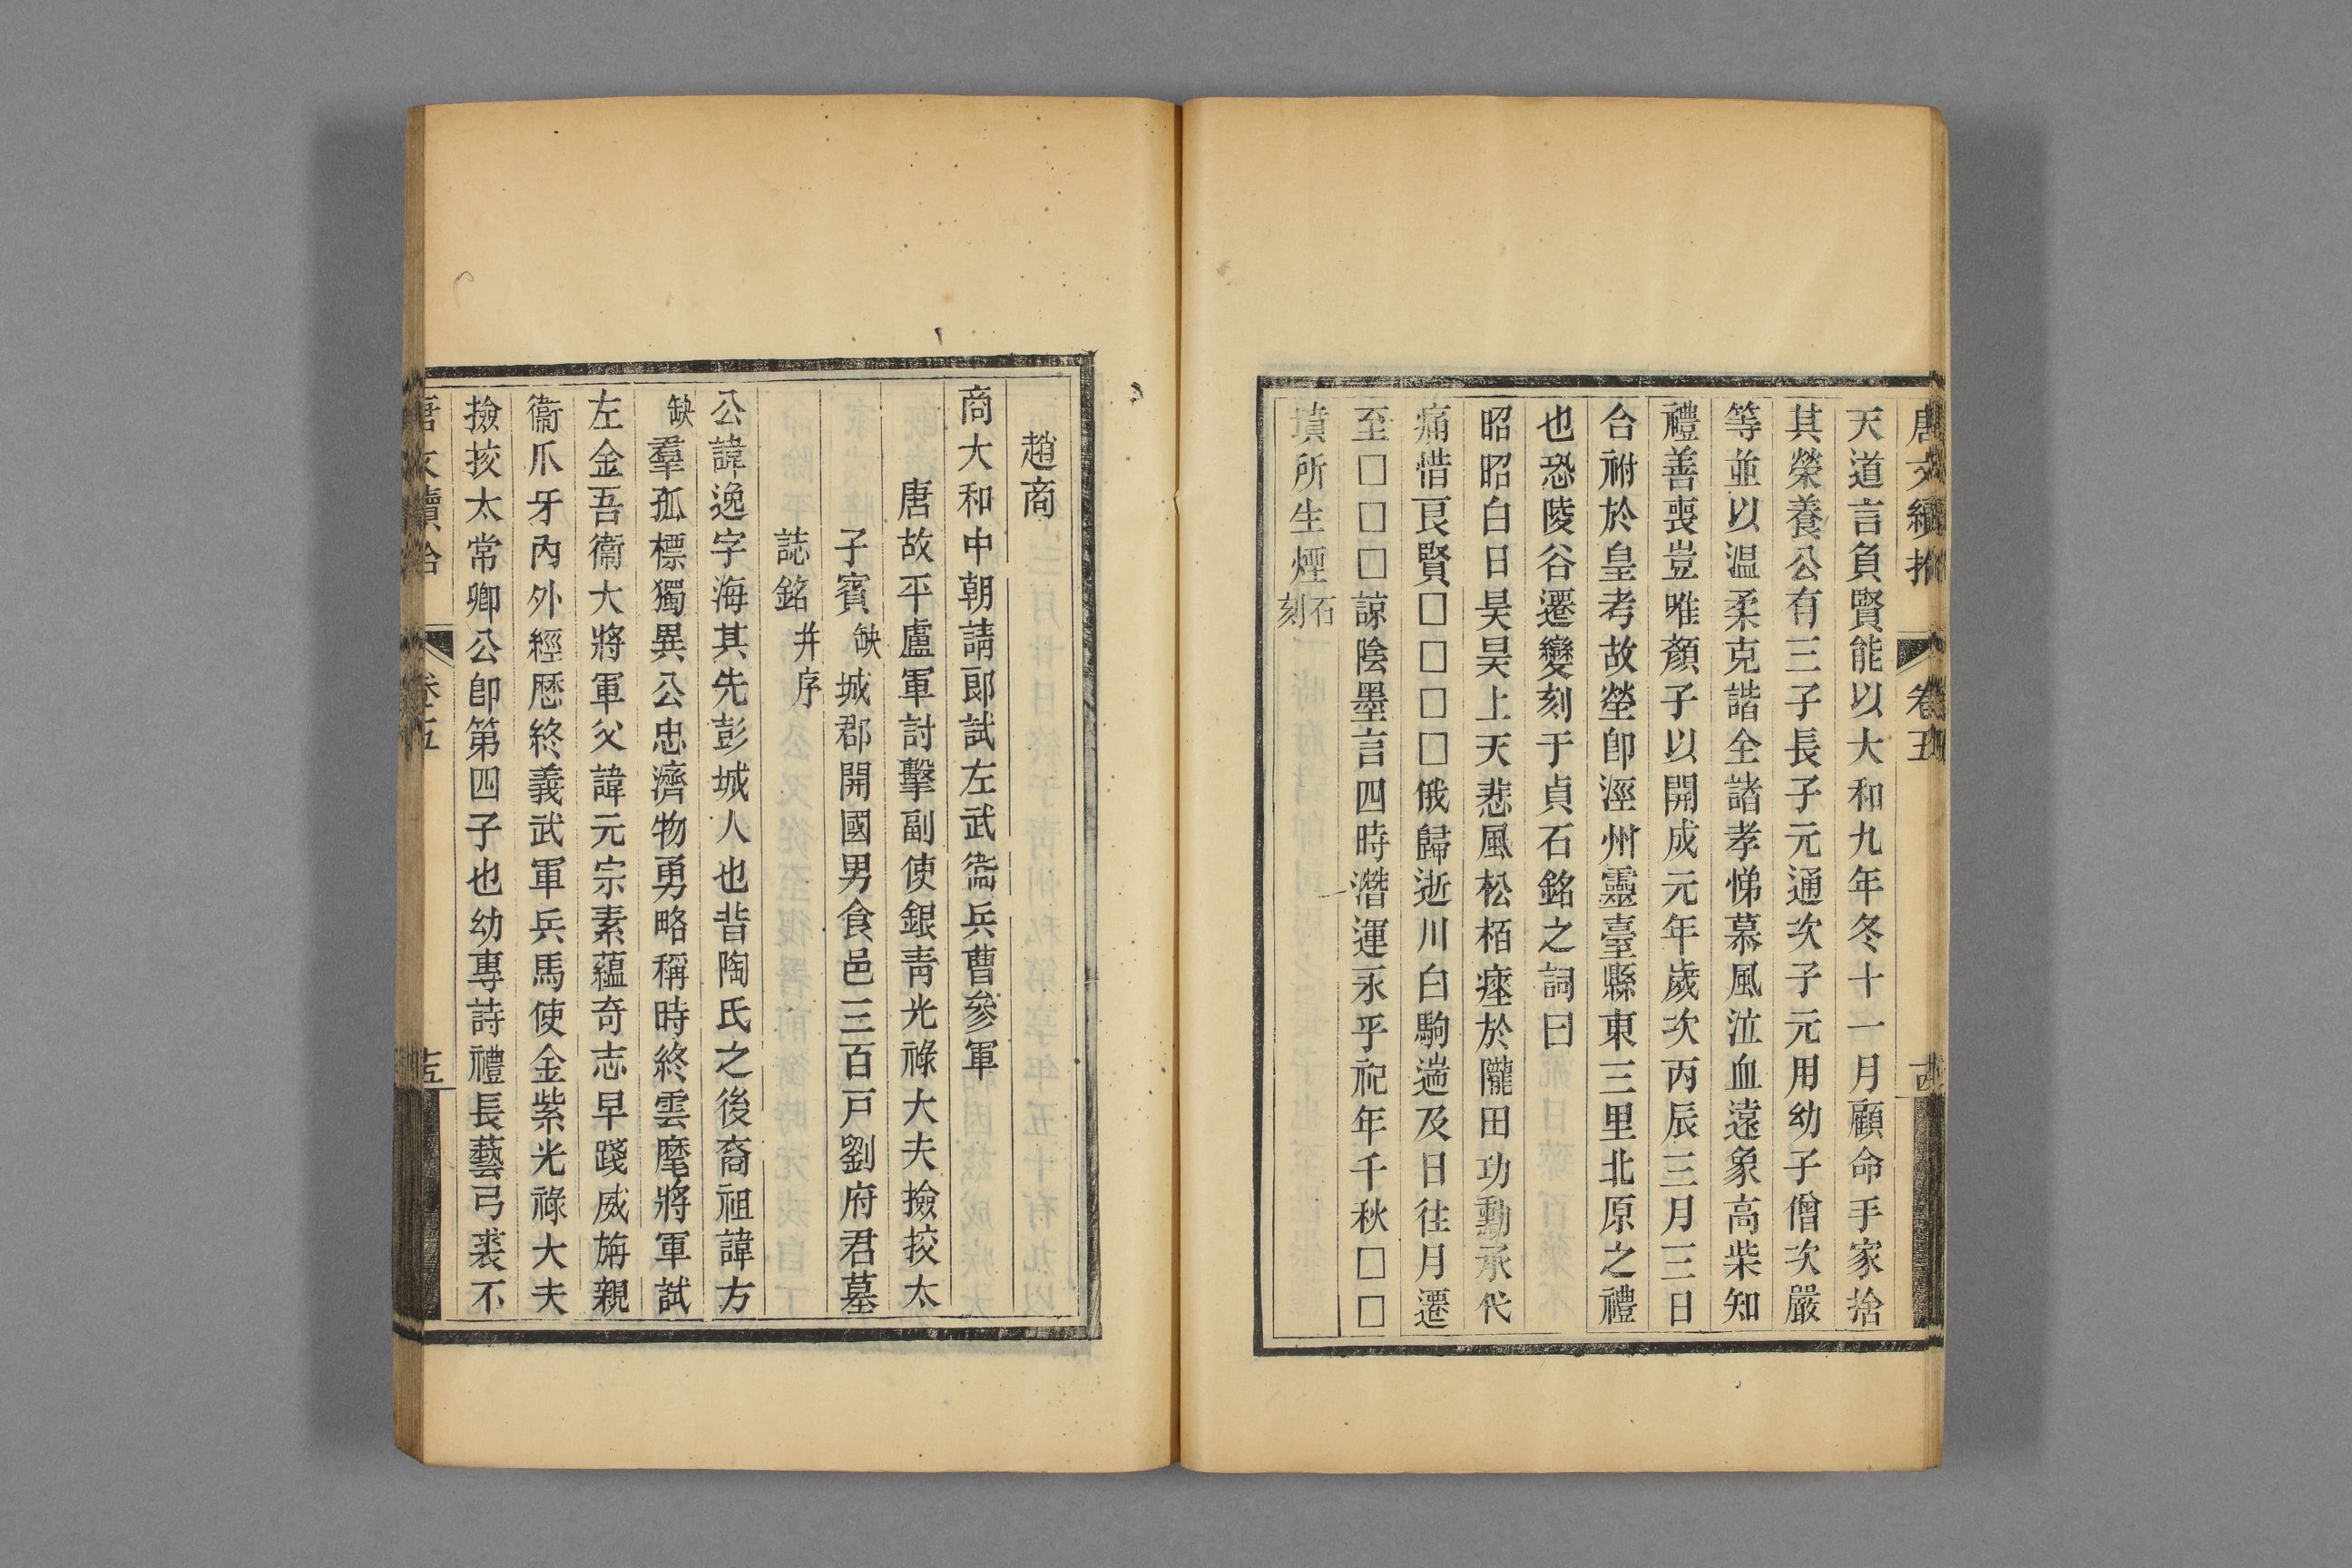 唐文續拾 卷五 古
天道言負賢能以大和九年冬十一月顧命手家捨
其榮養公有三子長子元通次子元用幼子僧次嚴
等並以温柔克諧全諸孝悌慕風泣血遠象高柴知
禮善喪豈唯顏子以開成元年歲次丙辰三月三日
合祔於皇考故塋卽涇州靈臺縣東三里北原之禮
也恐陵谷遷變刻于貞石銘之詞曰
昭昭白日昊昊上天悲風松栢瘞於隴田功勳承代
痛惜良賢□□□□俄歸逝川白駒遄及日往月遷
至□□□諒陰墨言四時潛運永乎祀年千秋□□
墳所生煙石刻
趙商
商大和中朝請郎試左武衞兵曹參軍
唐故平盧軍討擊副使銀靑光祿大夫撿挍太
子賓缺城郡開國男食邑三百戸劉府君墓
誌銘幷序
公諱逸字海其先彭城人也昔陶氏之後裔祖諱方
缺羣孤標獨異公忠濟物勇略稱時終雲麾將軍試
左金吾衞大將軍父諱元宗素蘊奇志早踐威旃親
衞爪牙內外經歷終義武軍兵馬使金紫光祿大夫
撿挍太常卿公卽第四子也幼專詩禮長藝弓裘不
唐文續拾 卷五 十五